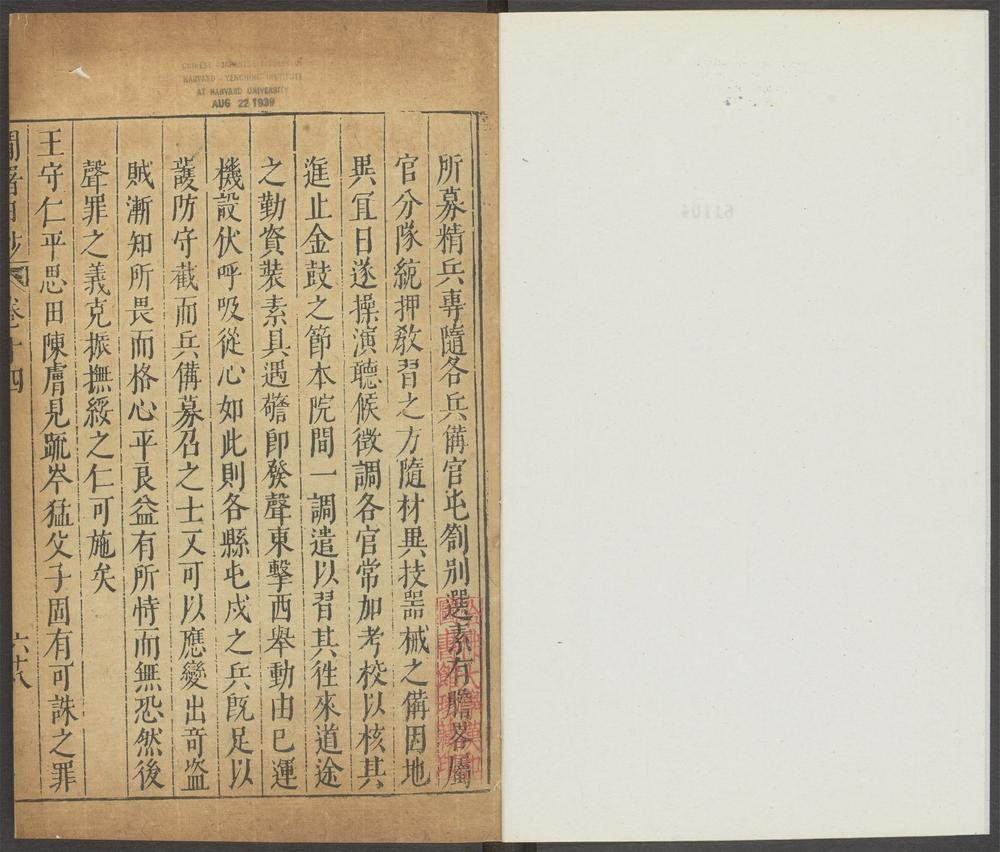 CHINESE - JAPANESE
HARVARD - YENCHING INSTITUTE
AT HARVARD UNIVERSITY
AUG 22 1939
所募精兵專隨各兵備官屯劄别選素有膽畧屬
官分隊統押敎習之方隨材異技器械之備因地
異冝日逐操演聽候徵調各官常加考校以核其
進止金鼓之節本院間一調遣以習其徃來道途
之勤資裝素具遇警即發聲東擊西舉動由巳運
機設伏呼吸從心如此則各縣屯戍之兵旣足以
護防守截而兵備募召之士又可以應變出竒盗
賊漸知所畏而格心平良益有所恃而無恐然後
聲罪之義克振撫綏之仁可施矣
王守仁平思田陳膚見疏岑猛父子固有可誅之罪
卷十四
六十八
61104